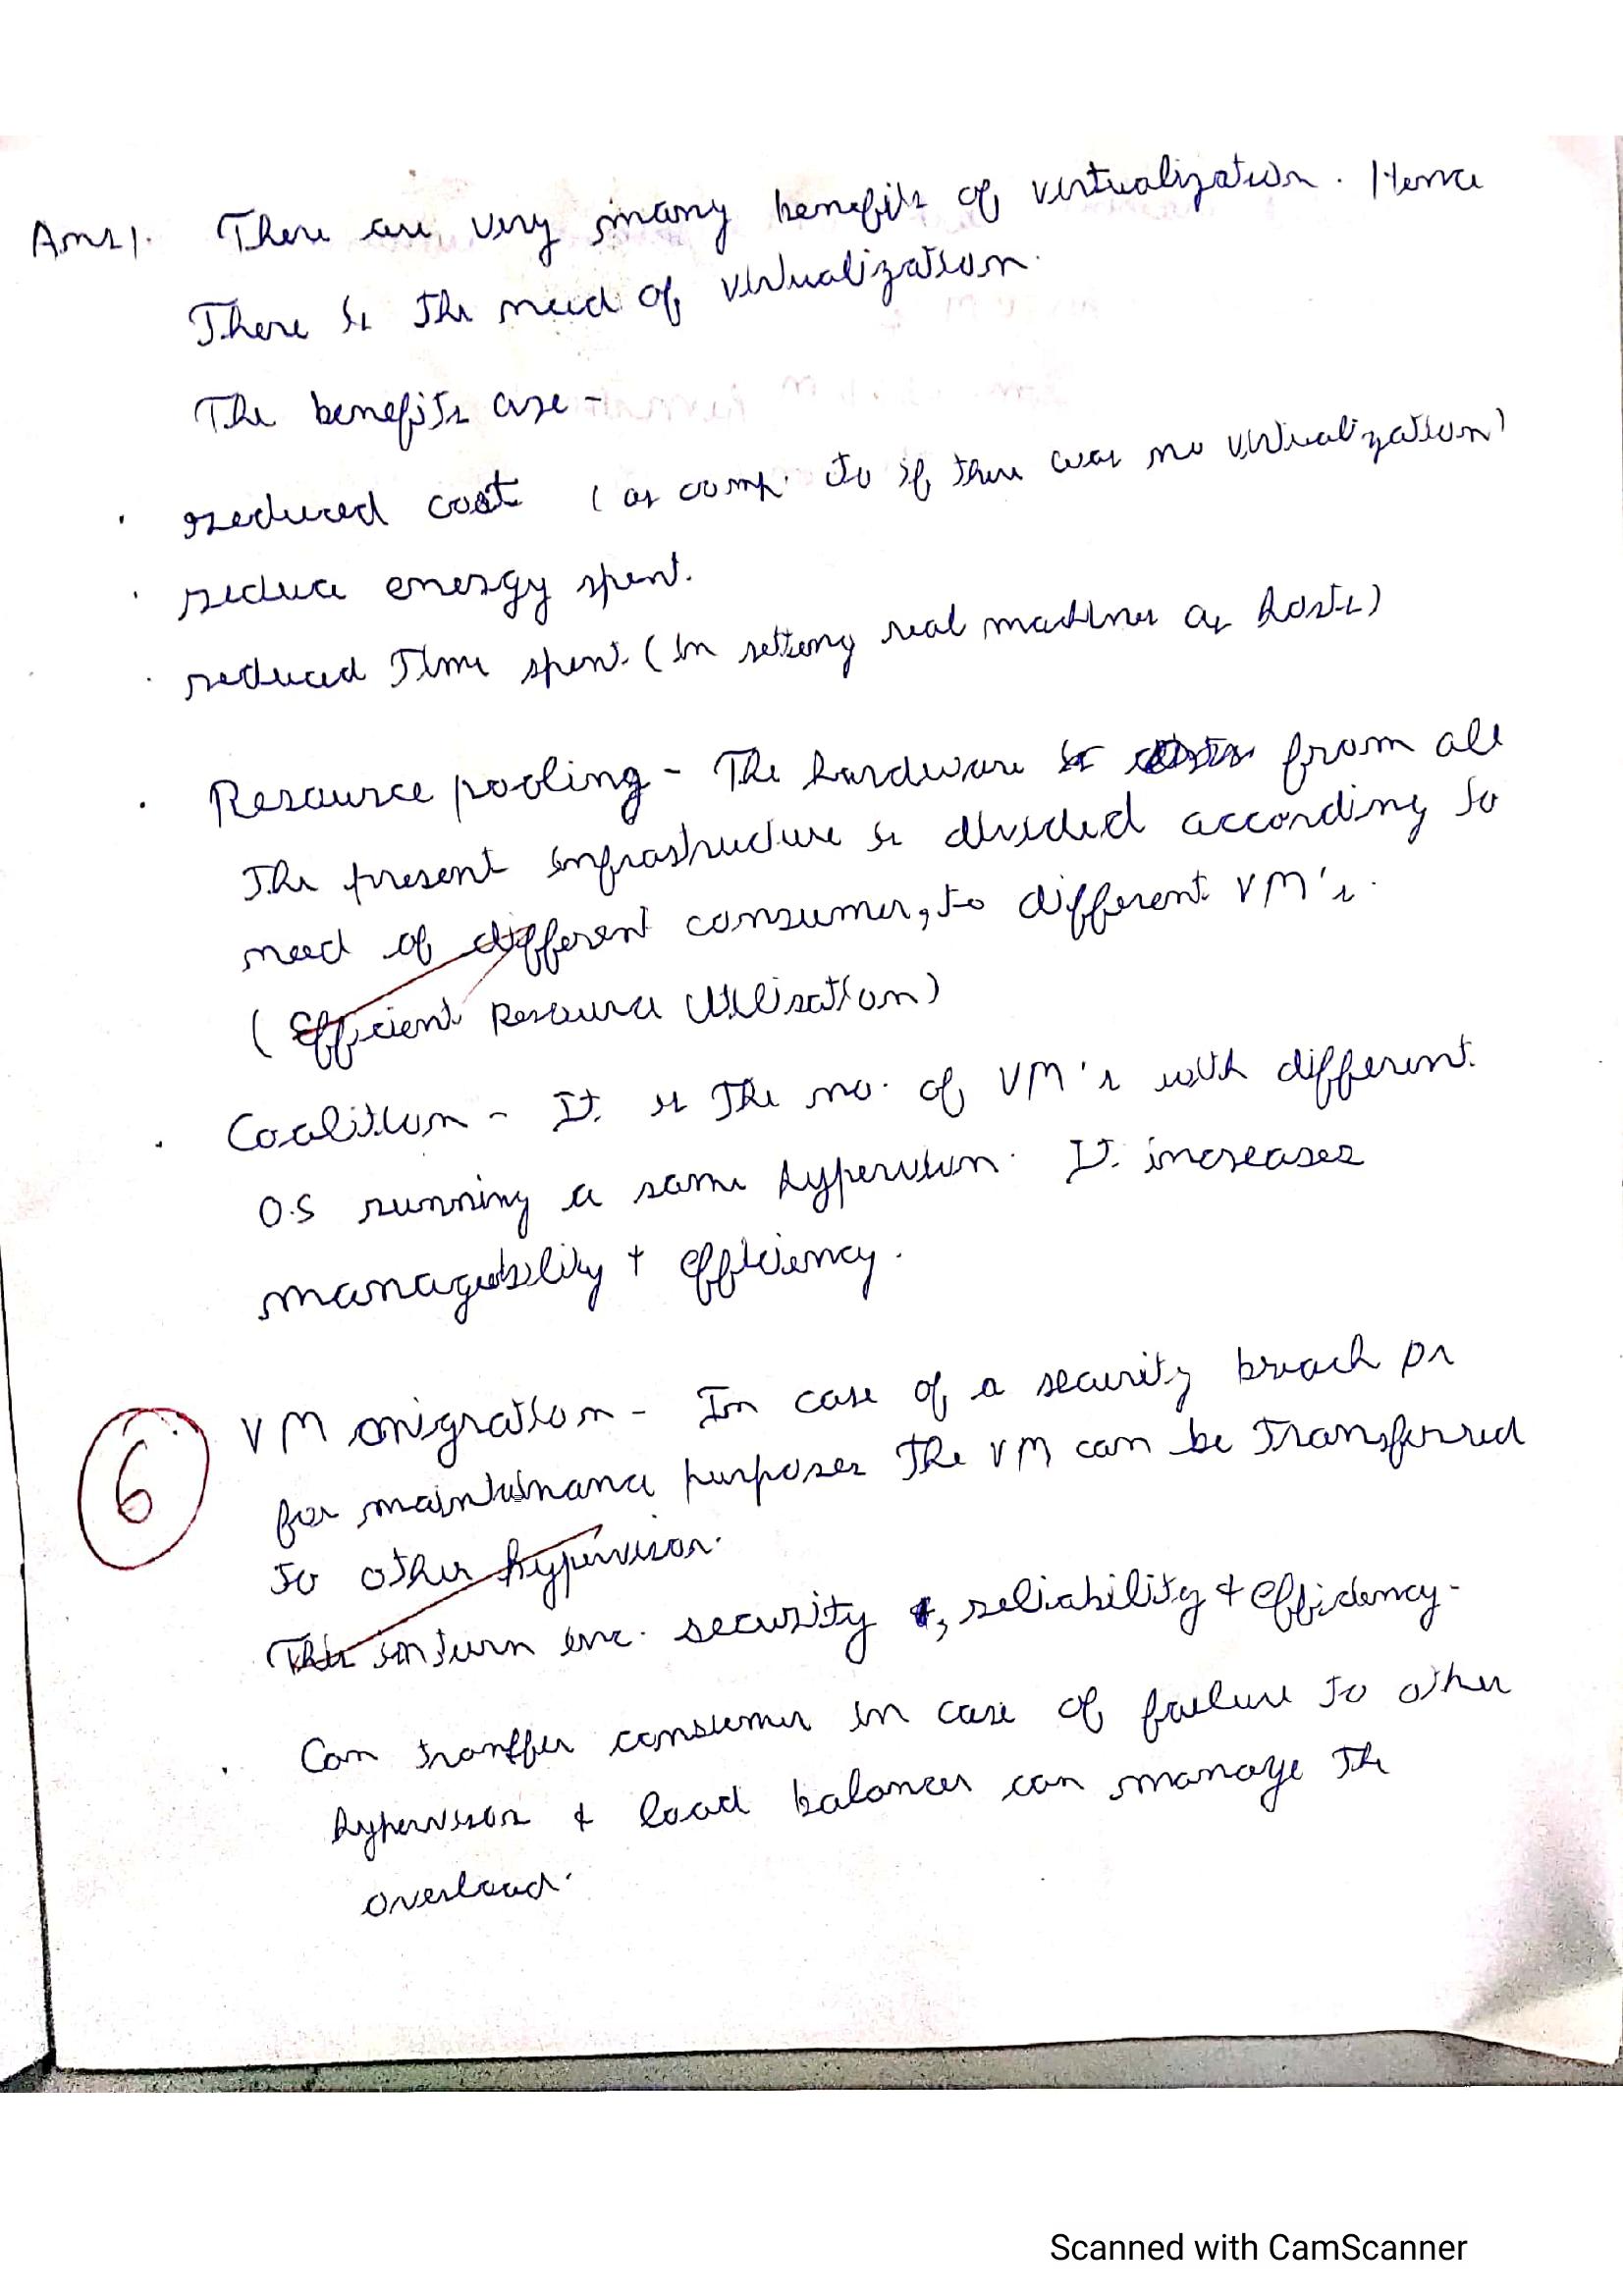 Ans1. There are very many benefits of virtualization. Hence
There is the need of virtualization.
The benefits are -
· reduced cost (as comp. to if there was no virtualization)
· reduce energy spent.
· reduced time spent. (in setting real machines as hosts)
· Resource pooling - The hardware is from all
the present infrastructure is divided according to
need of different consumer, to different VM's.
(Efficient Resource Utilisation)
· Coalition - It is the no. of VM's with different
O.S running a same hypervision. It increases
managebility + efficiency.
6
VM migration - In case of a security breach or
for maintainance purposes the VM can be transferred
to other hypervisor.
This inturn inc. security, reliability + efficiency.
· Can transfer consumer in case of failure to other
hypervisor & load balancer can manage the
overload.
Scanned with CamScanner